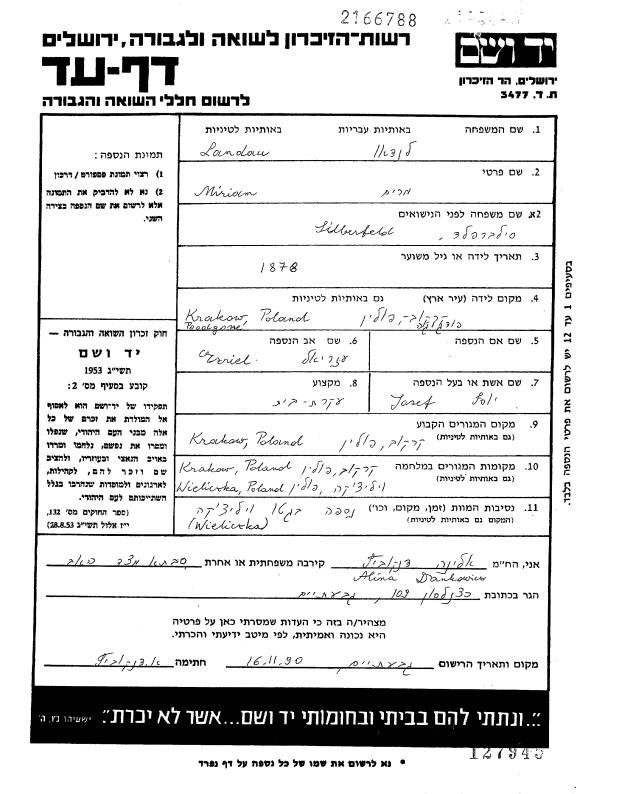 2166788
רשות-הזיכרון לשואה ולגבורה, ירושלים
דף-עד
לרשום חללי השואה והגבורה
יד ושם
ירושלים, הר הזיכרון
ת. ד. 3477
תמונת הנספה:
1) רצוי תמונת פספורט / דרכון
2) נא לא להדביק את התמונה
אלא לרשום את שם הנספה בצידה
השני.
חוק זכרון השואה והגבורה —
יד ושם
תשי״ג 1953
קובע בסעיף מס׳ 2:
תפקידו של יד-ושם הוא לאסוף
אל המולדת את זכרם של כל
אלה מבני העם היהודי, שנפלו
ומסרו את נפשם, נלחמו ומרדו
באויב הנאצי ובעוזריו, ולהציב
שם וזכר להם, לקהילות,
לארגונים ולמוסדות שנחרבו בגלל
השתייכותם לעם היהודי.
(ספר החוקים מס׳ 132,
י״ז אלול תשי״ג 28.8.53)
1. שם המשפחה באותיות עבריות באותיות לטיניות
לנדאו Landau
2. שם פרטי
מרים Miriam
2א. שם משפחה לפני הנישואים
סילברפלד, Silberfeld
3. תאריך לידה או גיל משוער
1878
4. מקום לידה (עיר ארץ) גם באותיות לטיניות
קרקוב, פולין Krakow, Poland
5. שם אם הנספה
6. שם אב הנספה
עזריאל Ezriel
7. שם אשת או בעל הנספה
יוסף Josef
8. מקצוע
עקרת-בית
9. מקום המגורים הקבוע
(גם באותיות לטיניות)
קרקוב, פולין Krakow, Poland
10. מקומות המגורים במלחמה
(גם באותיות לטיניות)
קרקוב, פולין Krakow, Poland
ויליצ׳קה, פולין Wieliczka, Poland
11. נסיבות המוות (זמן, מקום, וכו׳)
(המקום גם באותיות לטיניות)
נספה בגטו ויליצ׳קה
(Wieliczka)
אני, החי״מ אלינה דנקוביץ קירבה משפחתית או אחרת סבתא מצד האב
Alina Dankowicz
הגר בכתובת כצנלסון 109, גבעתיים
מצהיר/ה בזה כי העדות שמסרתי כאן על פרטיה
היא נכונה ואמיתית, לפי מיטב ידיעתי והכרתי.
מקום ותאריך הרישום גבעתיים 16.11.90 חתימה א.דנקוביץ
״...ונתתי להם בביתי ובחומותי יד ושם...אשר לא יכרת״. ישעיהו נ״ו, ה׳
127945
* נא לרשום את שמו של כל נספה על דף נפרד
בסעיפים 1 עד 12 יש לרשום את פרטי הנספה בלבד.